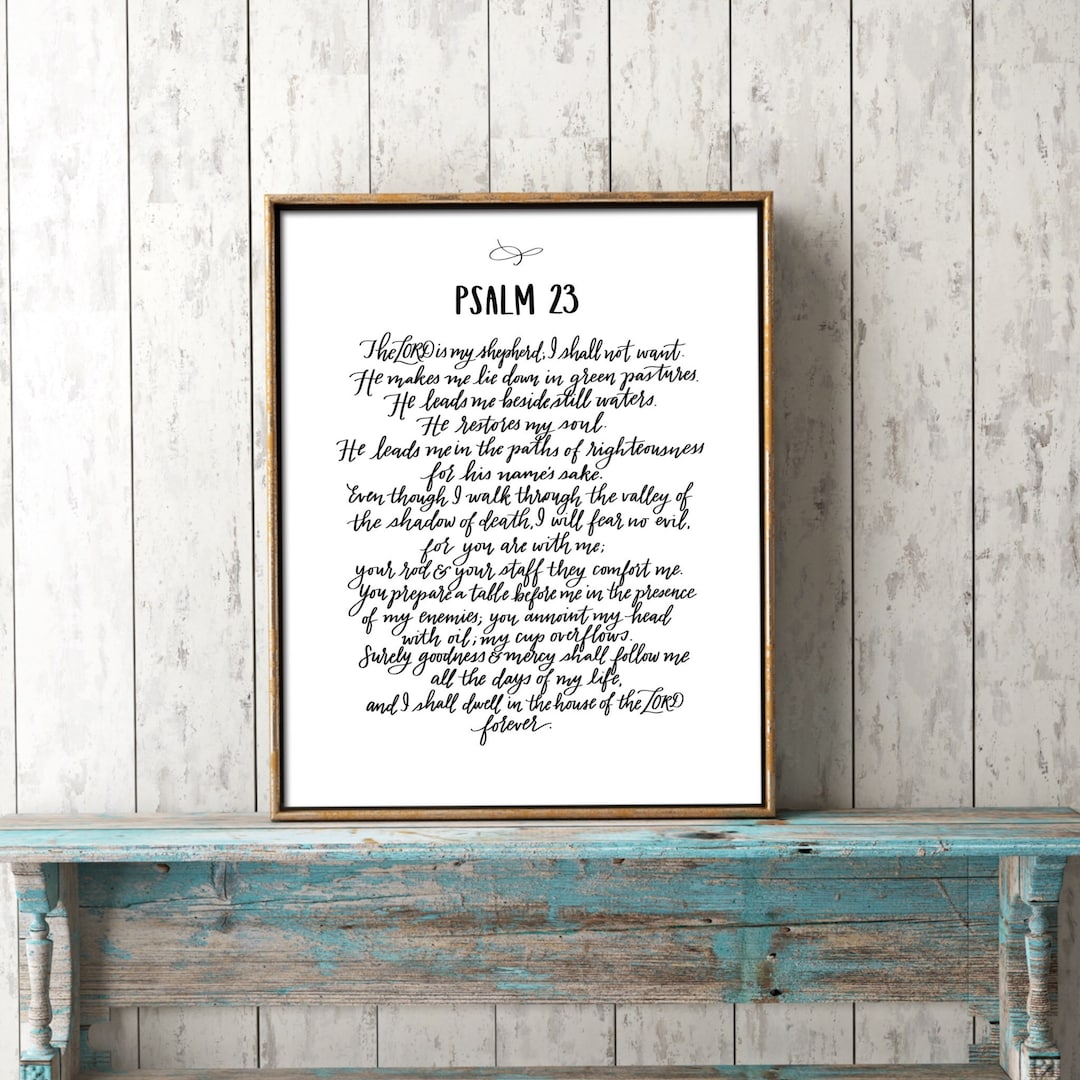 PSALM 23
The LORD is my shepherd; I shall not want.
He makes me lie down in green pastures.
He leads me beside still waters.
He restores my soul.
He leads me in the paths of righteousness
for his name's sake.
Even though I walk through the valley of
the shadow of death, I will fear no evil,
for you are with me;
your rod & your staff they comfort me.
You prepare a table before me in the presence
of my enemies; you annoint my head
with oil; my cup overflows.
Surely goodness & mercy shall follow me
all the days of my life,
and I shall dwell in the house of the LORD
forever.